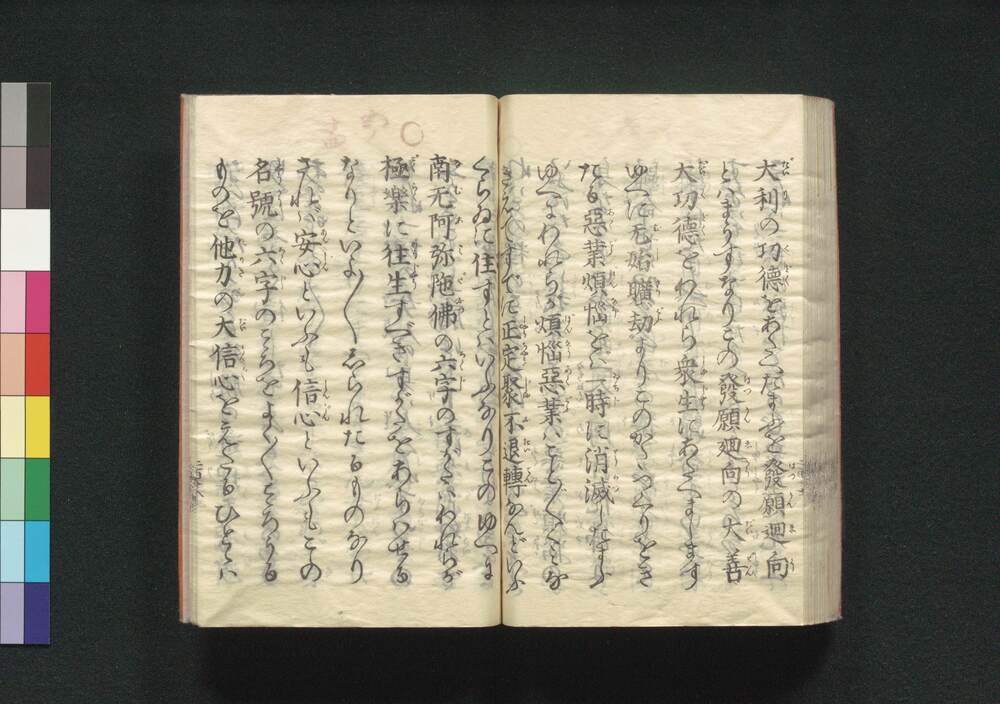 大利の功德をあたへたまふを發願廻向
とはまうすなりこの發願廻向の大善
大功德をわれら衆生にあたへまします
ゆへに无始曠劫よりこのかたつくりをき
たる惡業煩惱をは一時に消滅したまふ
ゆへにわれらか煩惱惡業はこと〴〵くみな
きえてすでに正定聚不退轉なんどいふ
くらゐに住すとはいふなりこのゆへに
南无阿弥陁佛の六字のすがたはわれらが
極樂に往生すべきすがたをあらはせる
なりといよ〳〵しられたるものなり
されば安心といふも信心といふもこの
名號の六字のこゝろをよく〳〵こゝろうる
ものを他力の大信心をえたるひとゝは